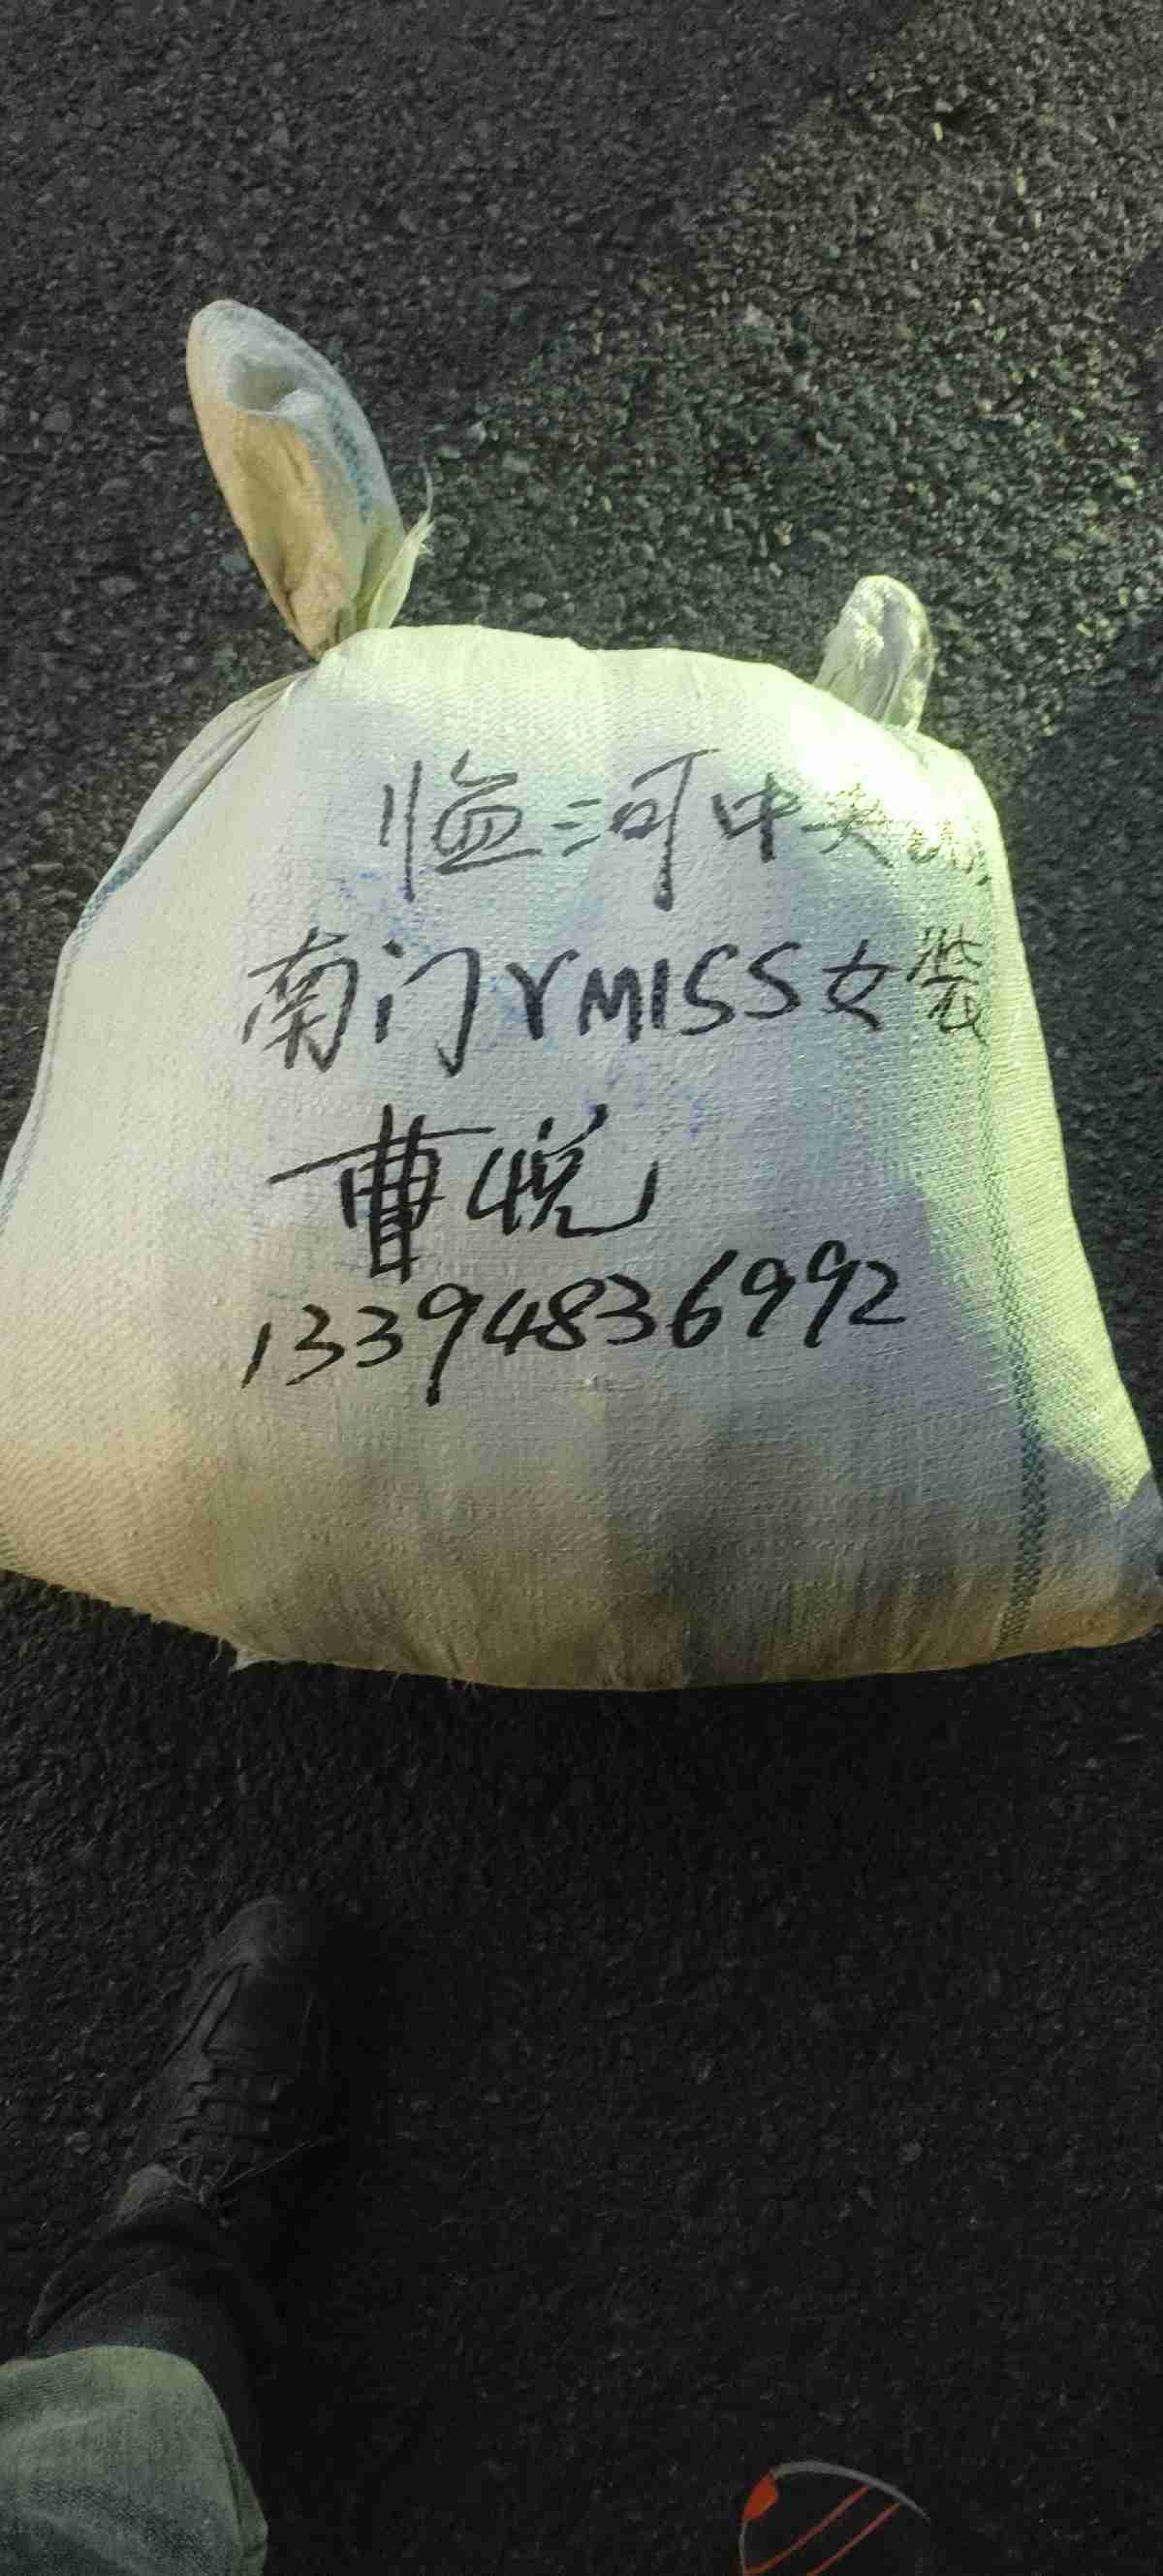 临河中央
南门YMISS女装
曹悦
13394836992